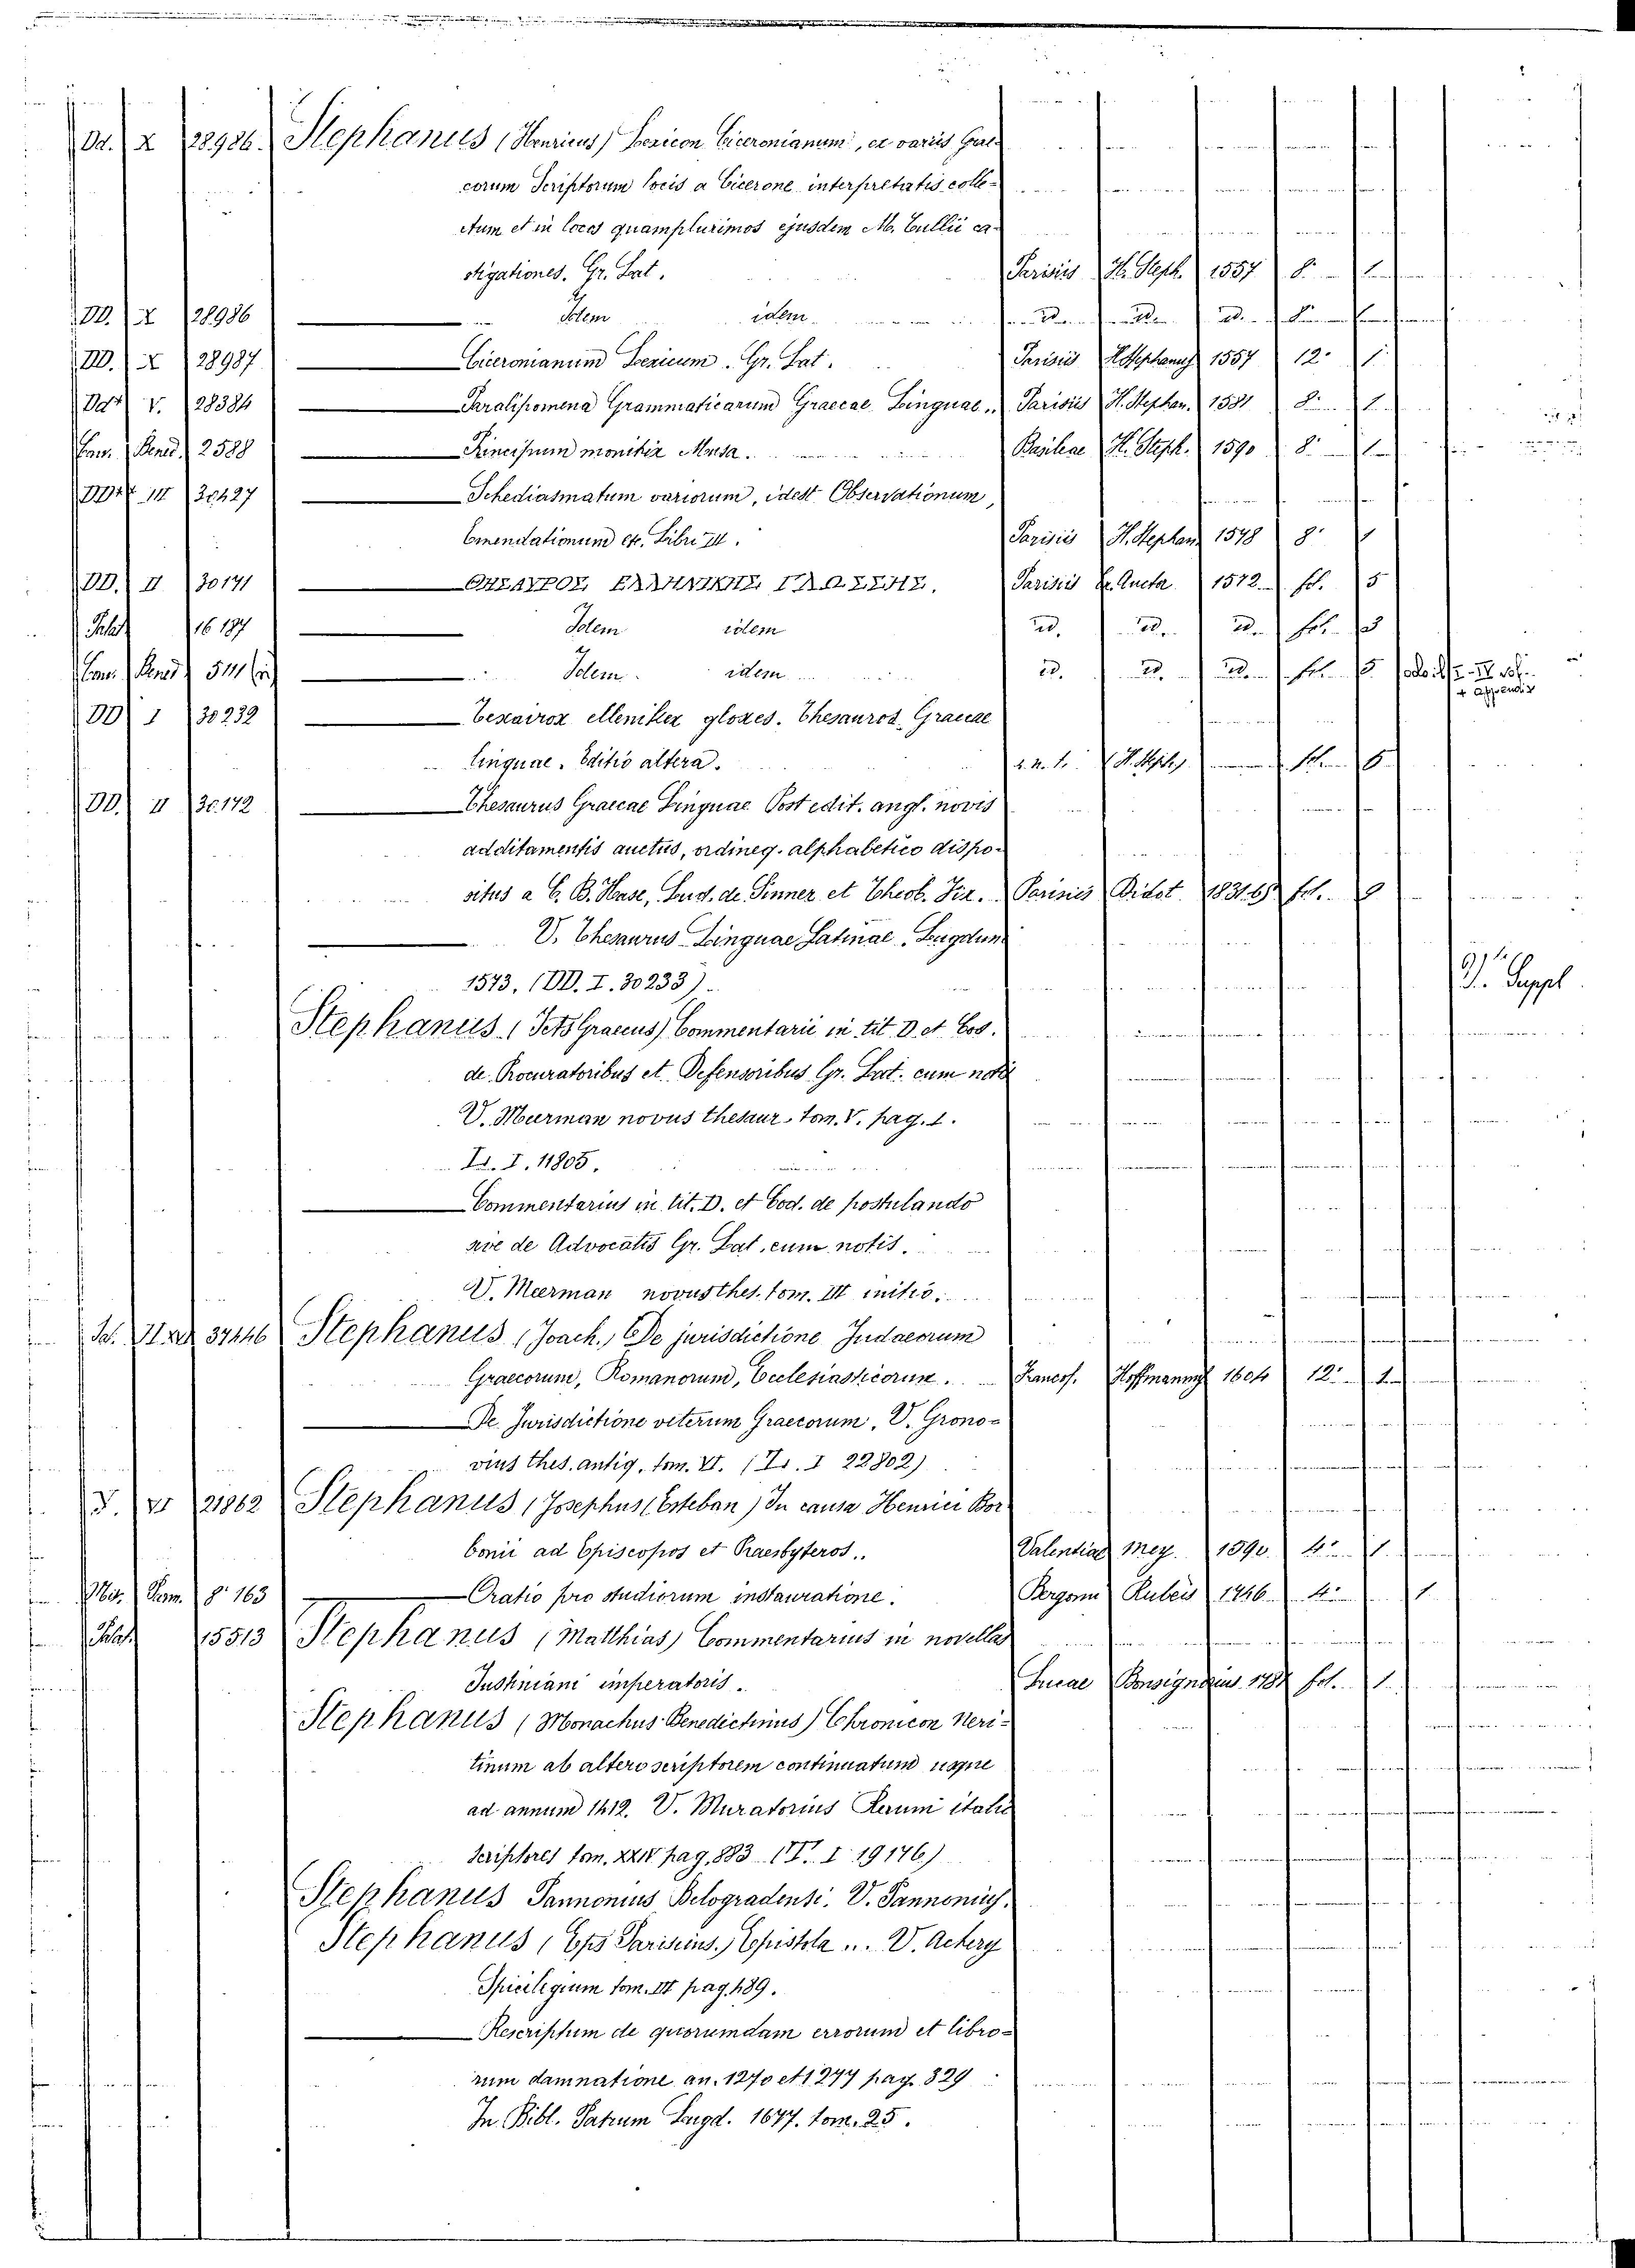 Dd. X 28986. Stephanus (Henricus) Lexicon Ciceronianum, ex variis Grae-
corum Scriptorum locis a Cicerone interpretatis colle-
ctum et in locos quamplurimos ejusdem M. Tullii ca-
stigationes. Gr. Lat. Parisiis H. Steph. 1557 8° 1
DD. X 28986 Idem idem id. id. id. 8°
DD. X 28987 Ciceronianum Lexicum. Gr. Lat. Parisiis H. Stephanus 1557 12° 1
V. 28384 Paralipomena Grammaticarum Graecae Linguae.. Parisiis H. Stephan. 1581 8° 1
Bened. 2588 Principum monitrix Musa. Basileae H. Steph. 1590 8° 1
III 30427 Schediasmatum variorum, idest Observationum,
Emendationum etc. Libri III. Parisiis H. Stephan. 1578 8° 1
DD. II 30171 ΘΗΣΑΥΡΟΣ ΕΛΛΗΝΙΚΗΣ ΓΛΩΣΣΗΣ. Parisiis Aucta 1572 fol. 5
Palat. 16187 Idem idem id. id. id. fol. 3
Bened. 511 Idem idem id. id. id. fol. 5
+ appendix
DD I 30232 Tesairox ellenikex gloxes. Thesauros Graecae
linguae. Editio altera. s. n. l. H. Steph. fol. 5
DD. II 30172 Thesaurus Graecae Linguae Post edit. angl. novis
additamentis auctus, ordineq. alphabetico dispo-
situs a C. B. Hase, Lud. de Sinner et Theob. Fix. Parisiis Didot fol. 9
V. Thesaurus Linguae Latinae. Lugduni
1573. (DD. I. 30233)
V. Suppl
Stephanus (Jcts Graecus) Commentarii in tit. D. et Cod.
de Procuratoribus et Defensoribus Gr. Lat. cum notis
V. Meerman novus thesaur. tom. V. pag. 1.
I. 11805.
Commentarius in tit. D. et Cod. de postulando
sive de Advocatis Gr. Lat. cum notis.
V. Meerman novus thes. tom. III initio.
37446 Stephanus (Joach.) De jurisdictione Judaeorum
Graecorum, Romanorum, Ecclesiasticorum. Francof. Hoffmannus 1604 12° 1
De Jurisdictione veterum Graecorum. V. Grono-
vius thes. antiq. tom. VI. ( I 22802)
VI 21862 Stephanus (Josephus (Esteban) In causa Henrici Bor
bonii ad Episcopos et Praesbyteros.. Valentiae Mey 1590 4° 1
8° 163 Oratio pro studiorum instauratione. Bergomi Rubeis 1746 4° 1
Palat. 15513 Stephanus (Matthias) Commentarius in novellas
Justiniani imperatoris. Lucae Bonsignorius fol. 1
Stephanus (Monachus Benedictinus) Chronicon Neri-
tinum ab altero scriptorem continuatum usque
ad annum 1412. V. Muratorius Rerum italic
Scriptores tom. XXIV pag. 883 ( I 19176)
Stephanus Pannonius Belogradensi. V. Pannonius.
Stephanus (Eps Parisiens.) Epistola ... V. Achery
Spicilegium tom. III pag. 489.
Rescriptum de quorumdam errorum et libro-
rum damnatione an. 1270 et 1277 pag. 329
In Bibl. Patrum Lugd. 1677. tom. 25.